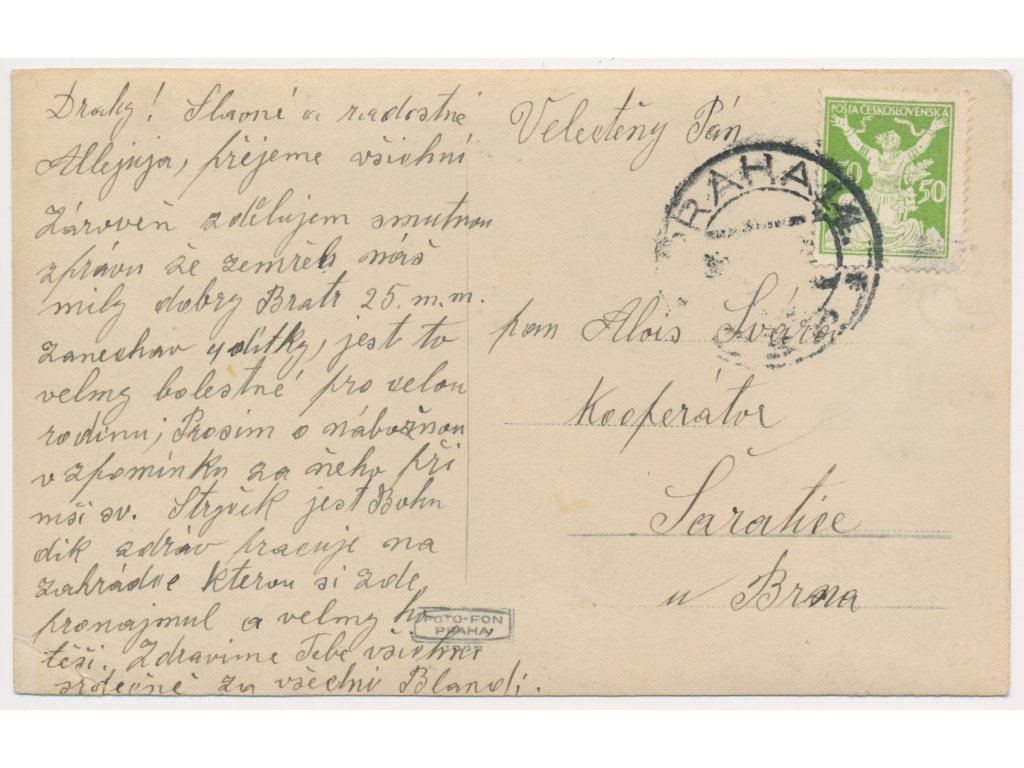 Drahy! Slavné a radostné
Allejuja, přejeme všichni
Zároveň zdělujem smutnou
zprávu že zemřel náš
mily dobry Bratr 25. m.m.
zanechav 4 dítky, jest to
velmy bolestné pro celou
rodinu, Prosim o nábožnou
vzpomínku za ňeho při
mši sv. Strýčik jest Bohu
dik zdráv pracuje na
zahrádce kterou si zde
pronajmul a velmy ho
těší. Zdravime Tebe všichni
srdečně za všechni Blandi.
FOTO-FON
PRAHA
Velectěny Pán
pan Alois Švára
Kooperátor
Šaratice
u Brna
POŠTA ČESKOSLOVENSKÁ
50 50
PRAHA